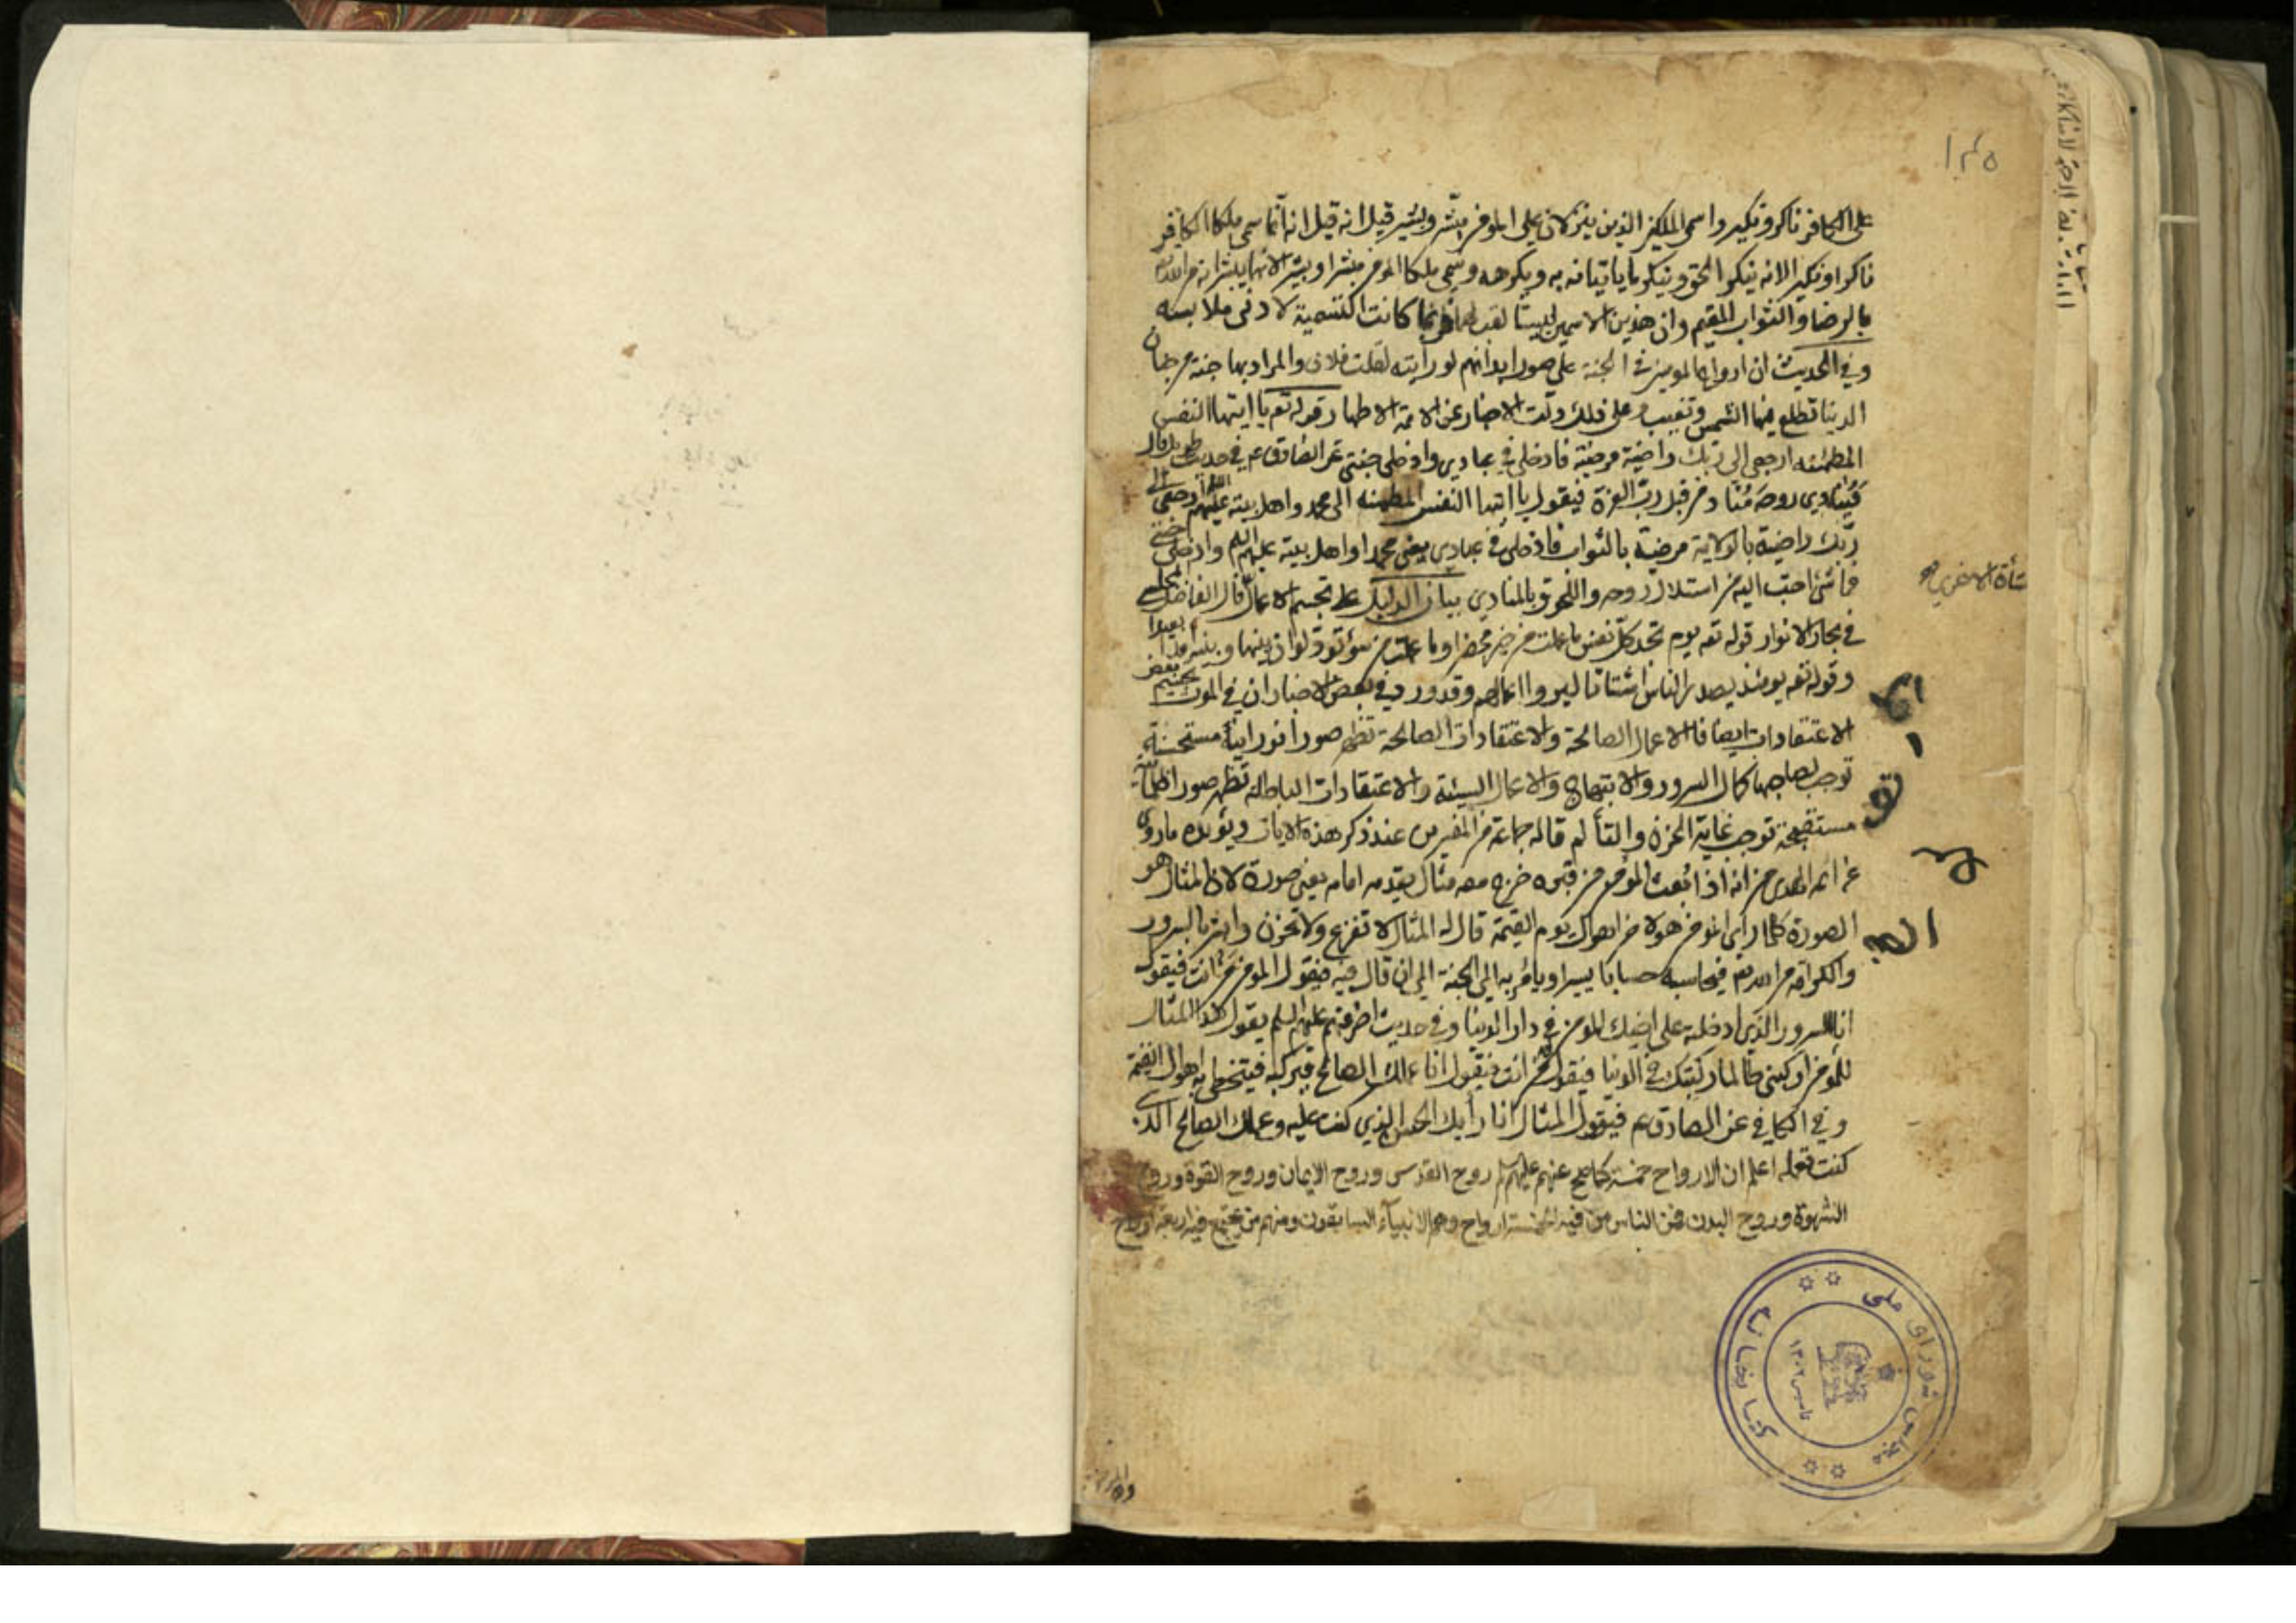 ١٣٥
على الكافر ناكر ونكير واسمى الملكين الذين ينزلان على المومن مبشر وبشير قيل انه قيل انه انما سمى ملكا الكافر
ناكرا ونكيرا لانه ينكر الحق وينكر ما ياتيانه به ويكرهه وسمى ملكا المومن مبشرا وبشيرا لانهما يبشرانه من الله تع
بالرضا والثواب المقيم وان هذين الاسمين ليستا لقب لهما وانما كانت التسمية لادنى ملابسه
وفي الحديث ان ارواح المومنين في الجنة على صور ابدانهم لو رايته لقلت فلان والمراد بها جنة من جنان
الدنيا تطلع فيها الشمس وتغيب وعلى ذلك دلت الاخبار عن الائمة الاطهار قوله تع يا ايتها النفس
المطمئنه ارجعي الى ربك راضية مرضية فادخلي في عبادي وادخلي جنتي عن الصادق ع في حديث طويل قال
فينادي روحه مناد من قبل رب العزة فيقول يا ايتها النفس المطمئنه الى محمد واهل بيته عليهم السلم ارجعي الى
ربك راضية بالولاية مرضية بالثواب فادخلي في عبادي يعني محمدا واهل بيته عليهم السلم وادخلي جنتي
فما شئ احب اليه من استلال روحه واللحوق بالمنادي بيان الدليل على تجسم الاعمال قال الفاضل المجلسي
في بحار الانوار قوله تع يوم تجد كل نفس ما عملت من خير محضرا وما عملت من سوء تود لو ان بينها وبينه امدا بعيدا
وقوله تع يومئذ يصدر الناس اشتاتا ليروا اعمالهم وقد ورد في بعض الاخبار ان في الموت تجسيم بعض
الاعتقادات ايضا فالاعمال الصالحة والاعتقادات الصالحة تظهر صورا نورانية مستحسنة
توجب لصاحبها كمال السرور والابتهاج والاعمال السيئة والاعتقادات الباطلة تظهر صورا ظلمانية
مستقبحة توجب غاية الحزن والتألم قاله جماعة من المفسرين عند ذكر هذه الايات ويؤيده ما روى
عن ائمه الهدى من انه اذا بعث المومن من قبره خرج معه مثال يقدمه امامه يعني صورة لان المثال هو
الصورة كلما راى المومن هولا من اهوال يوم القيمة قال له المثال لا تفزع ولا تحزن وابشر بالسرور
والكرامة من الله تع فيحاسبه حسابا يسيرا ويامر به الى الجنة الى ان قال فيه فيقول المومن من انت فيقول
انا السرور الذي ادخلته على اخيك المومن في دار الدنيا وفي حديث اخر عنهم عليهم السلم يقول هذا المثال
للمومن اركبني طالما ركبتك في الدنيا فيقول من انت فيقول انا عملك الصالح فيركبه فيتخطى به اهوال القيمة
وفي الكافي عن الصادق ع فيقول المثال انا رايك الحسن الذي كنت عليه وعملك الصالح الذي
كنت تعمله اعلم ان الارواح خمسة كما صح عنهم عليهم السلم روح القدس وروح الايمان وروح القوة وروح
الشهوة وروح البدن فمن الناس من فيه الخمسة ارواح وهم الانبياء السابقون ومنهم من يجتمع فيه اربعة ارواح
نشأة الاخرى
كتابخانه مجلس شورای ملی
تاسیس ١٣٠٢